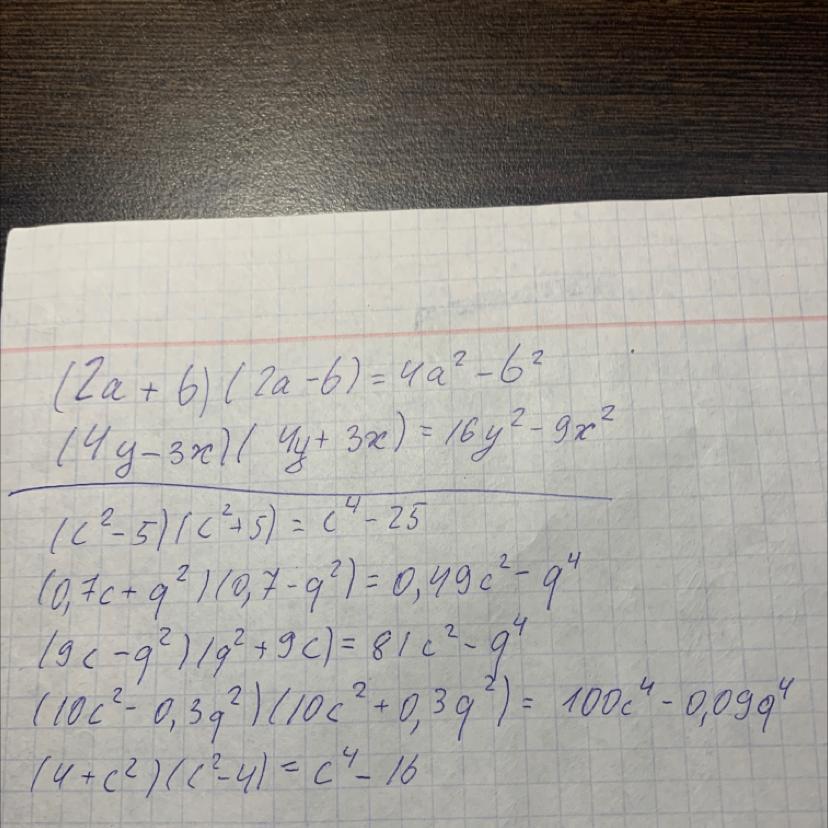 (2a + b)(2a - b) = 4a² - b²
(4y - 3x)(4y + 3x) = 16y² - 9x²
(c² - 5)(c² + 5) = c⁴ - 25
(0,7c + q²)(0,7 - q²) = 0,49c² - q⁴
(9c - q²)(q² + 9c) = 81c² - q⁴
(10c² - 0,3q²)(10c² + 0,3q²) = 100c⁴ - 0,09q⁴
(4 + c²)(c² - 4) = c⁴ - 16